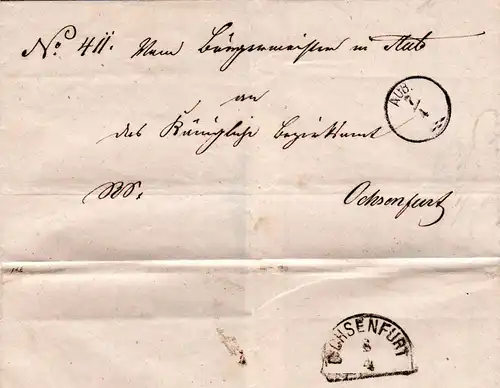 No. 411. Vom Bürgermeister in Aub
AUB.
7/4
an
das Königliche Bezirksamt
Ochsenfurt
OCHSENFURT
8/4